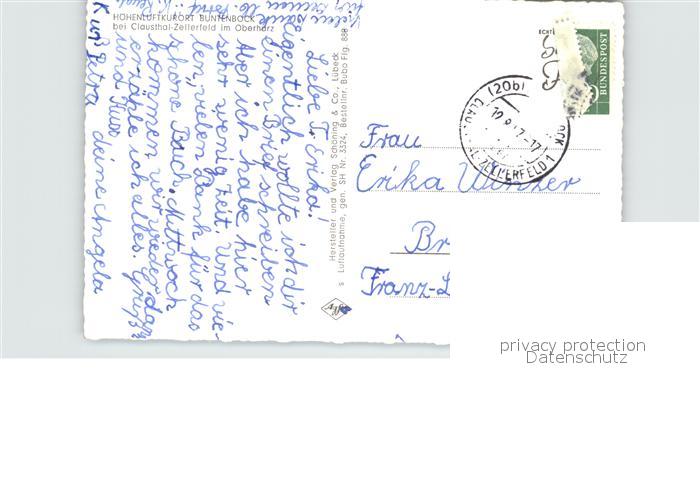 HÖHENLUFTKURORT BUNTENBOCK
bei Clausthal-Zellerfeld im Oberharz
Liebe T. Erika!
Eigentlich wollte ich dir
einen Brief schreiben
Aber ich habe hier
sehr wenig Zeit. und vie-
len, vielen Dank für das
schöne Buch. Mittwoch
kommen wir wieder dann
erzähle ich alles. Gruß
und Kuss deine Angela
Petra
Hersteller und Verlag Schöning & Co., Lübeck
s Luftaufnahme, gen. SH Nr. 3324, Bestellnr. Bubo Flg. 888
Agfa
ECHTE
DEUTSCHE
BUNDESPOST
(20b)
CLAUSTHAL-ZELLERFELD 1
Frau
Erika Winzer
Br
Franz-L
privacy protection
Datenschutz